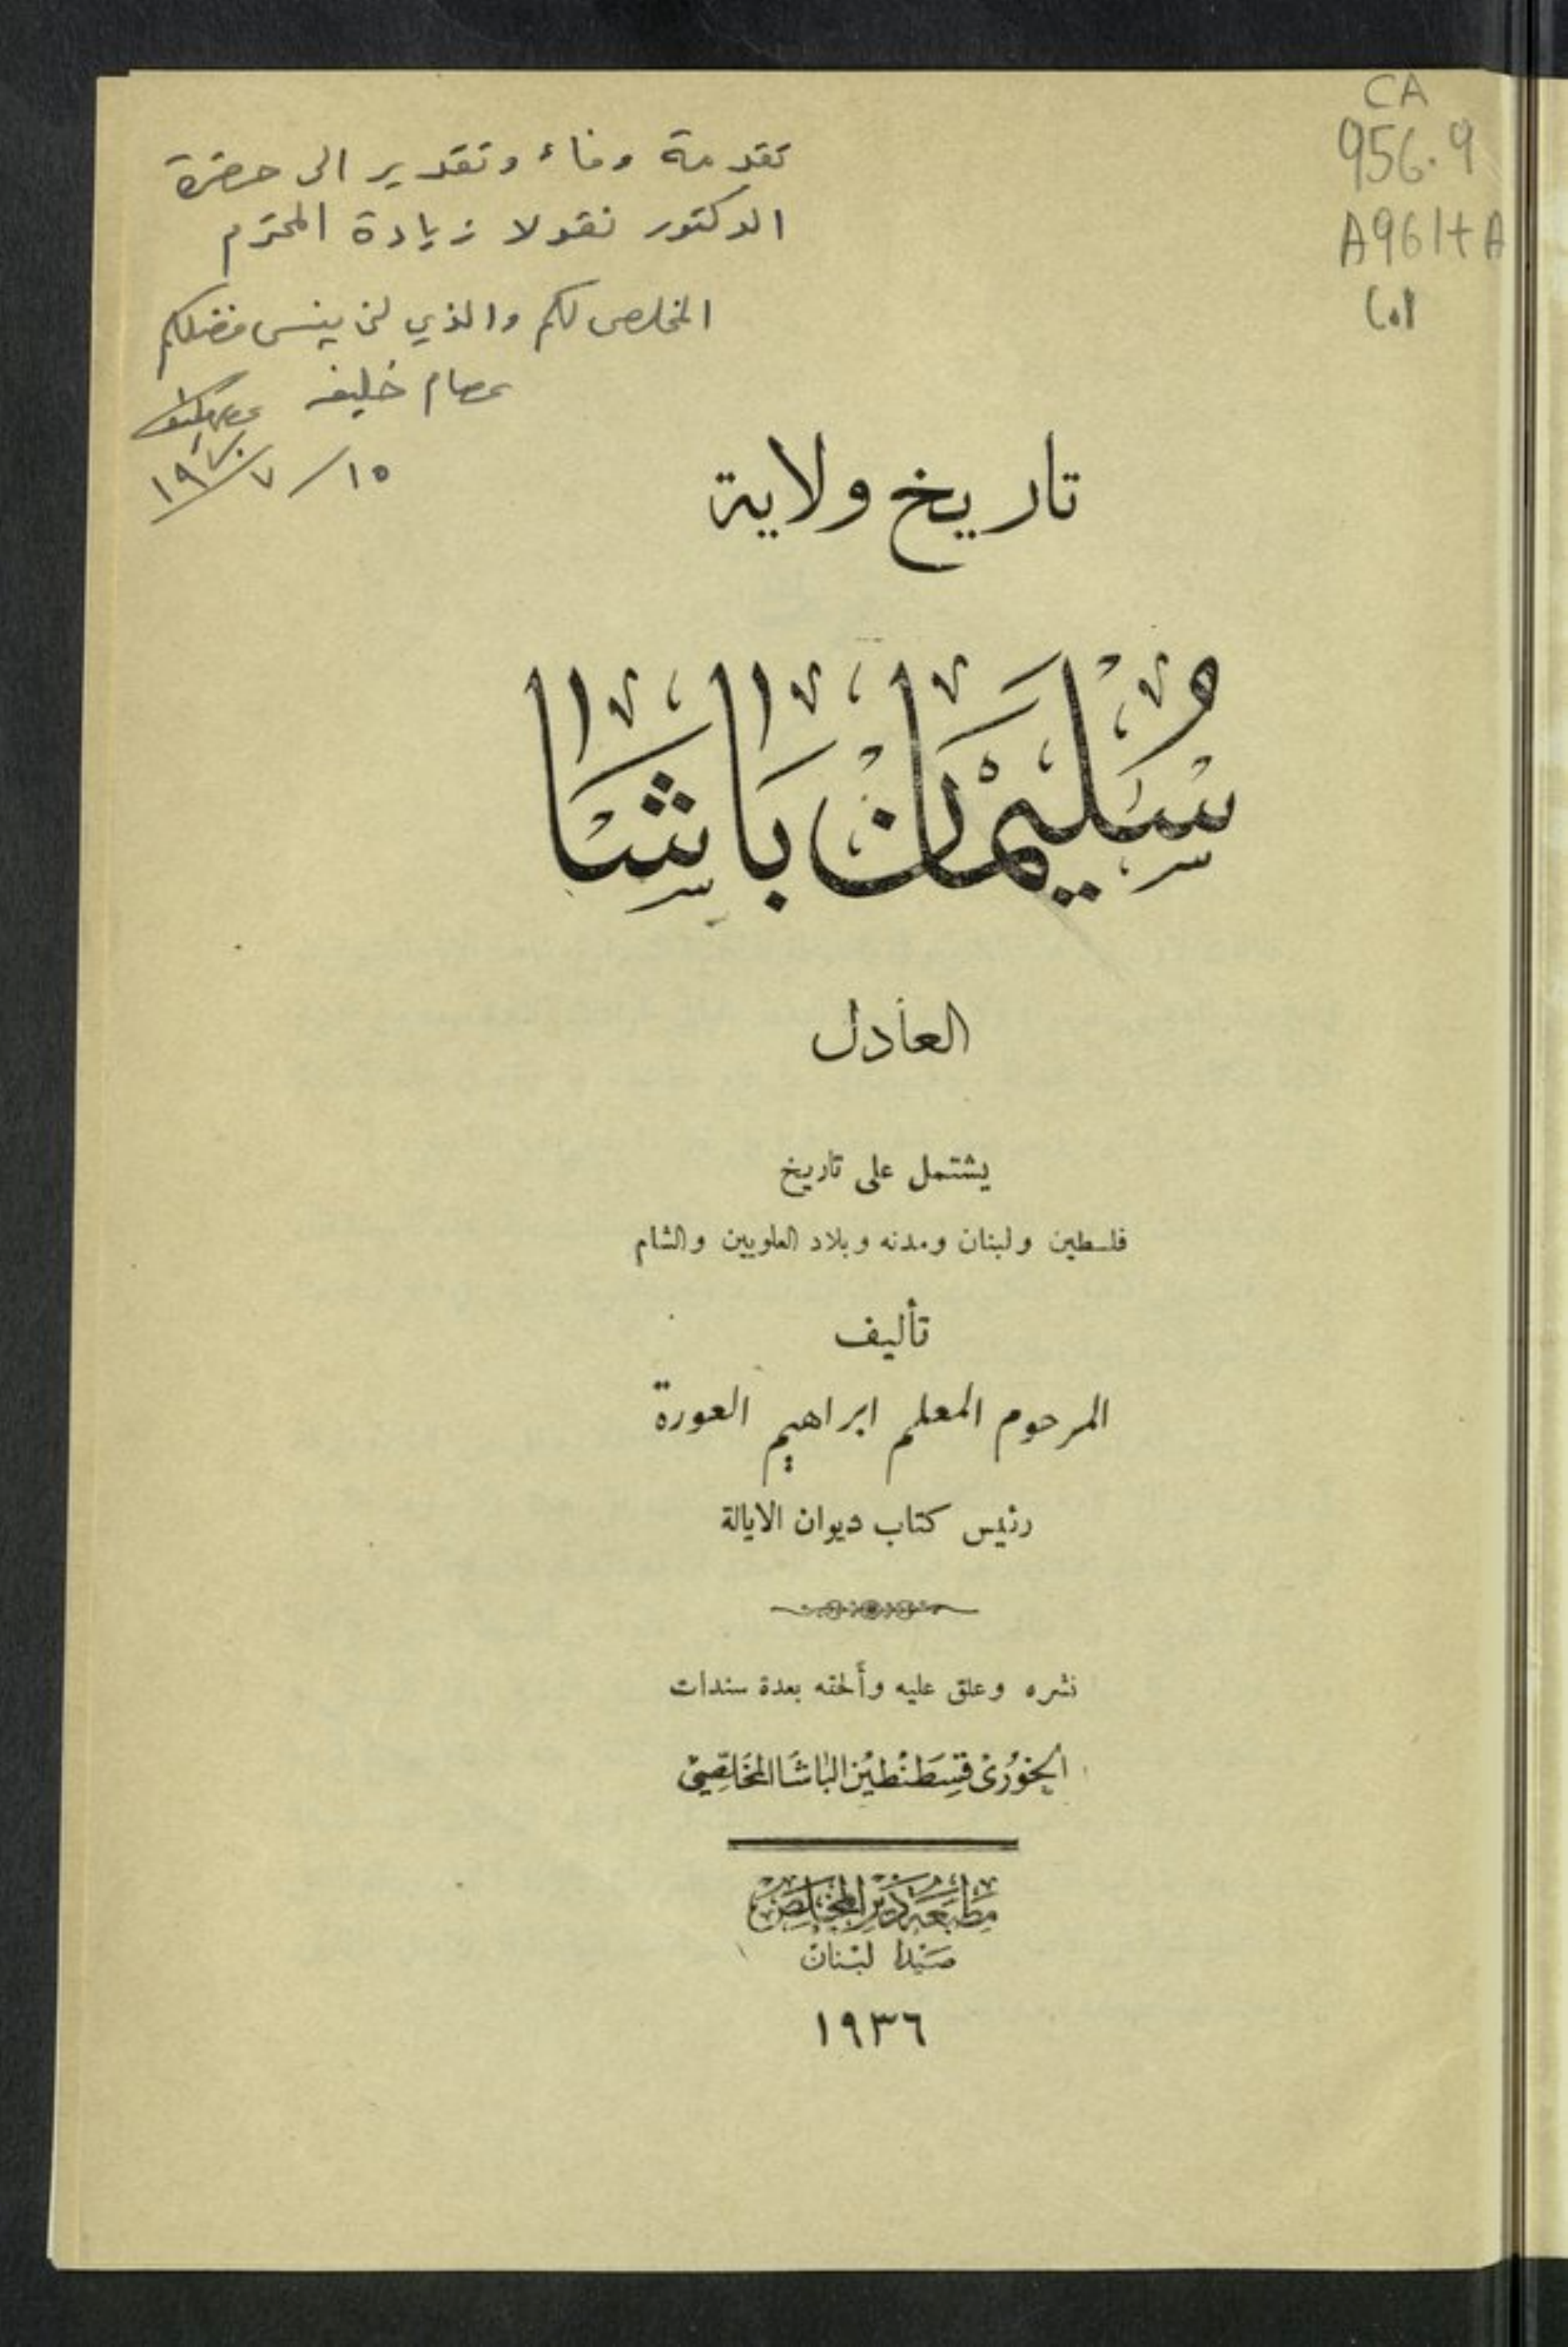 CA
956.9
A961tA
c.1
تقدمة وفاء وتقدير الى حضرة
الدكتور نقولا زيادة المحترم
المخلص لكم والذي لن ينسى فضلكم
عصام خليفه
١٥/٧/١٩٧٠
تاريخ ولاية
سُلَيْمَان بَاشَا
العادل
يشتمل على تاريخ
فلسطين ولبنان ومدنه وبلاد العلويين والشام
تأليف
المرحوم المعلم ابراهيم العورة
رئيس كتاب ديوان الايالة
نشره وعلق عليه وألحقه بعدة سندات
الخوري قسطنطين الباشا المخلصي
مطبعة دير المخلص
صيدا لبنان
١٩٣٦